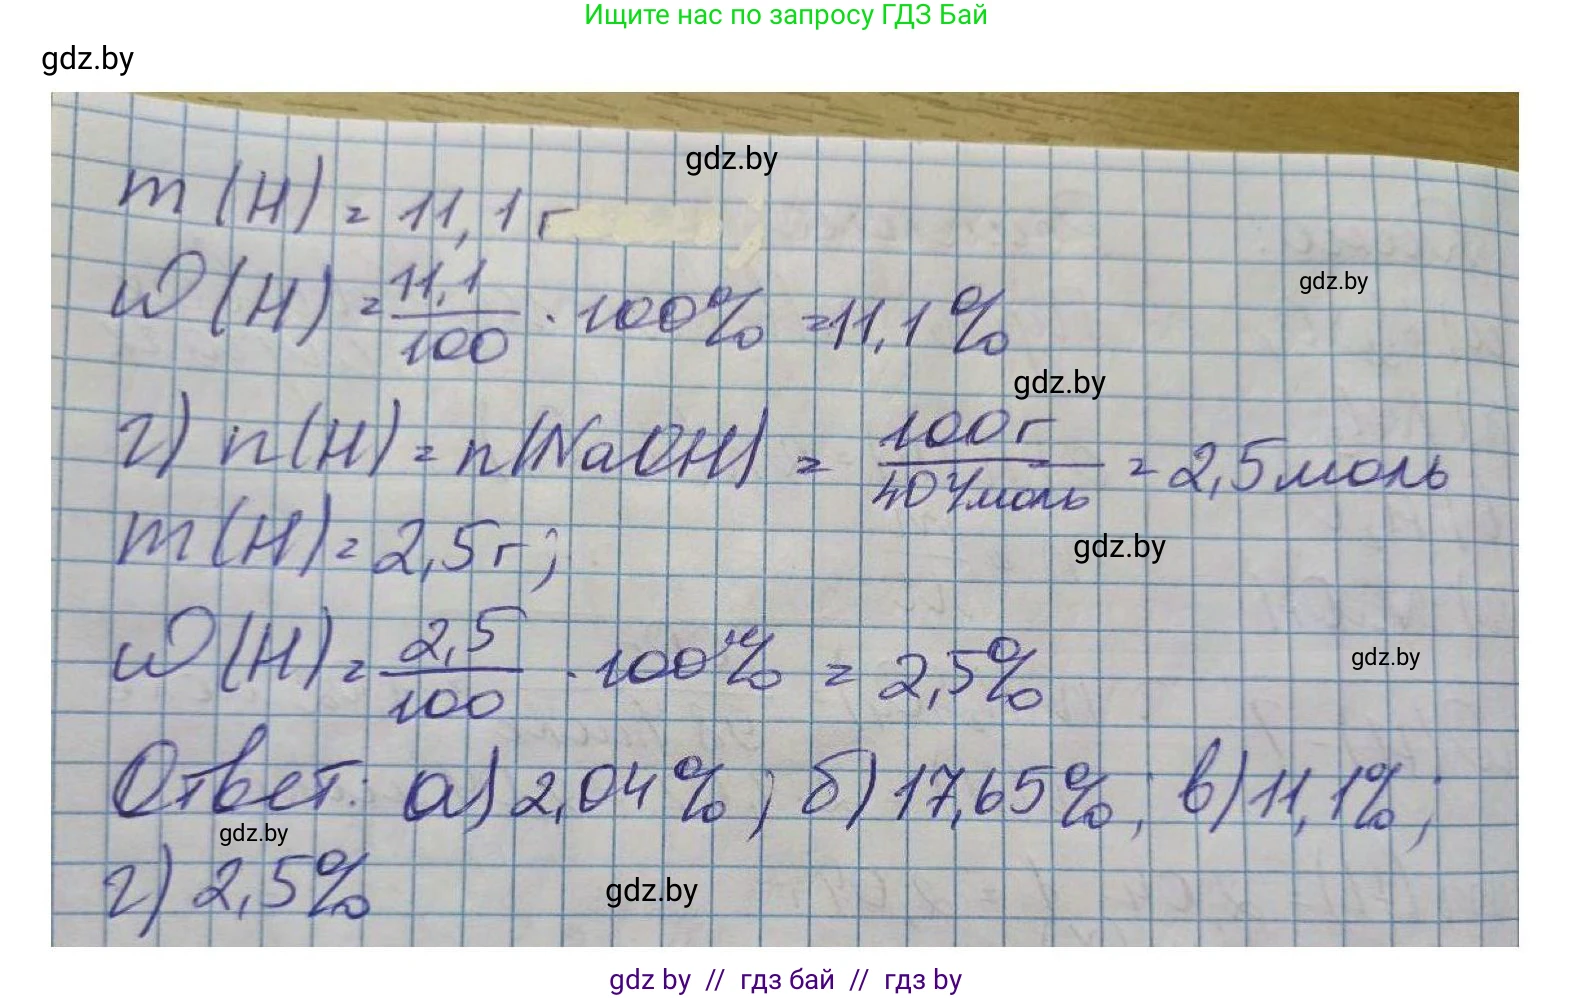 Ищите нас по запросу ГДЗ Бай
gdz.by
gdz.by
m(H) = 11,1 г
gdz.by
ω(H) = 11,1/100 · 100% = 11,1%
gdz.by
г) n(H) = n(NaOH) = 100г/40 г/моль = 2,5 моль
m(H) = 2,5г;
gdz.by
ω(H) = 2,5/100 · 100% = 2,5%
gdz.by
Ответ: а) 2,04%; б) 17,65%; в) 11,1%;
gdz.by
г) 2,5%
gdz.by
gdz by // гдз бай // гдз by